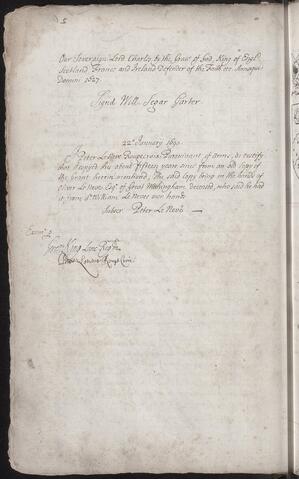 5
Our Soveraign Lord Charles by the Grace of God, King of Engld
Scotland France and Ireland Defender of the Faith etc Annoque
Domini 1627.
Signd Will. Segar Garter.
22th January 1690.
I Peter LeNeve Rougecroix Pursuivant of Arms, do certify
that I copyed this about fifteen years since from an old copy of
the grant herein mentioned, The said copy being in the hands of
Oliver LeNeve Esq. of Great Witchingham deceased, who said he had
it from Sr William LeNeve own hand
Peter LeNeve
Exam
King Lanc
Rouge Croix